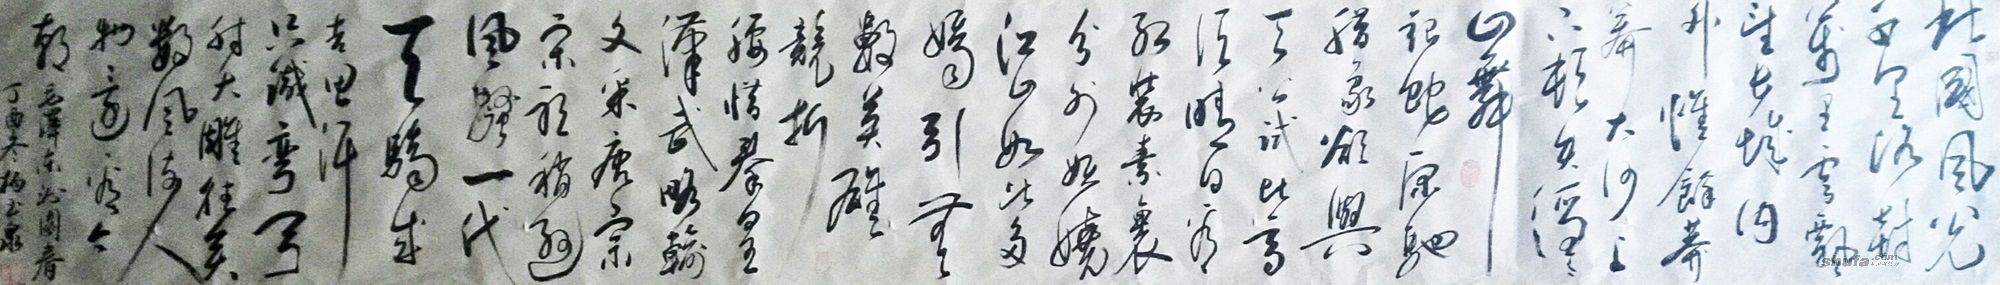 北國風光
千里冰封
萬里雪飄
望長城内
外惟餘莽
莽大河上
下頓失滔滔
山舞
銀蛇原馳
蜡象欲與
天公試比高
須晴日看
紅裝素裹
分外妖嬈
江山如此多
嬌引無
數英雄
競折
腰惜秦皇
漢武略輸
文采唐宗
宋祖稍遜
風騷一代
天驕成
吉思汗
只識彎弓
射大雕往矣
數風流人
物還看今
朝
毛澤東沁園春
丁酉冬楊玉泉
shufa.com